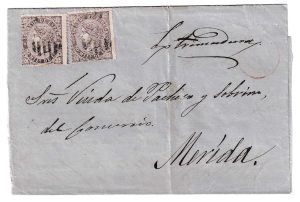 Extremadura.
Sres Viuda de Pacheco y Sobrino,
del Comercio.
Merida.